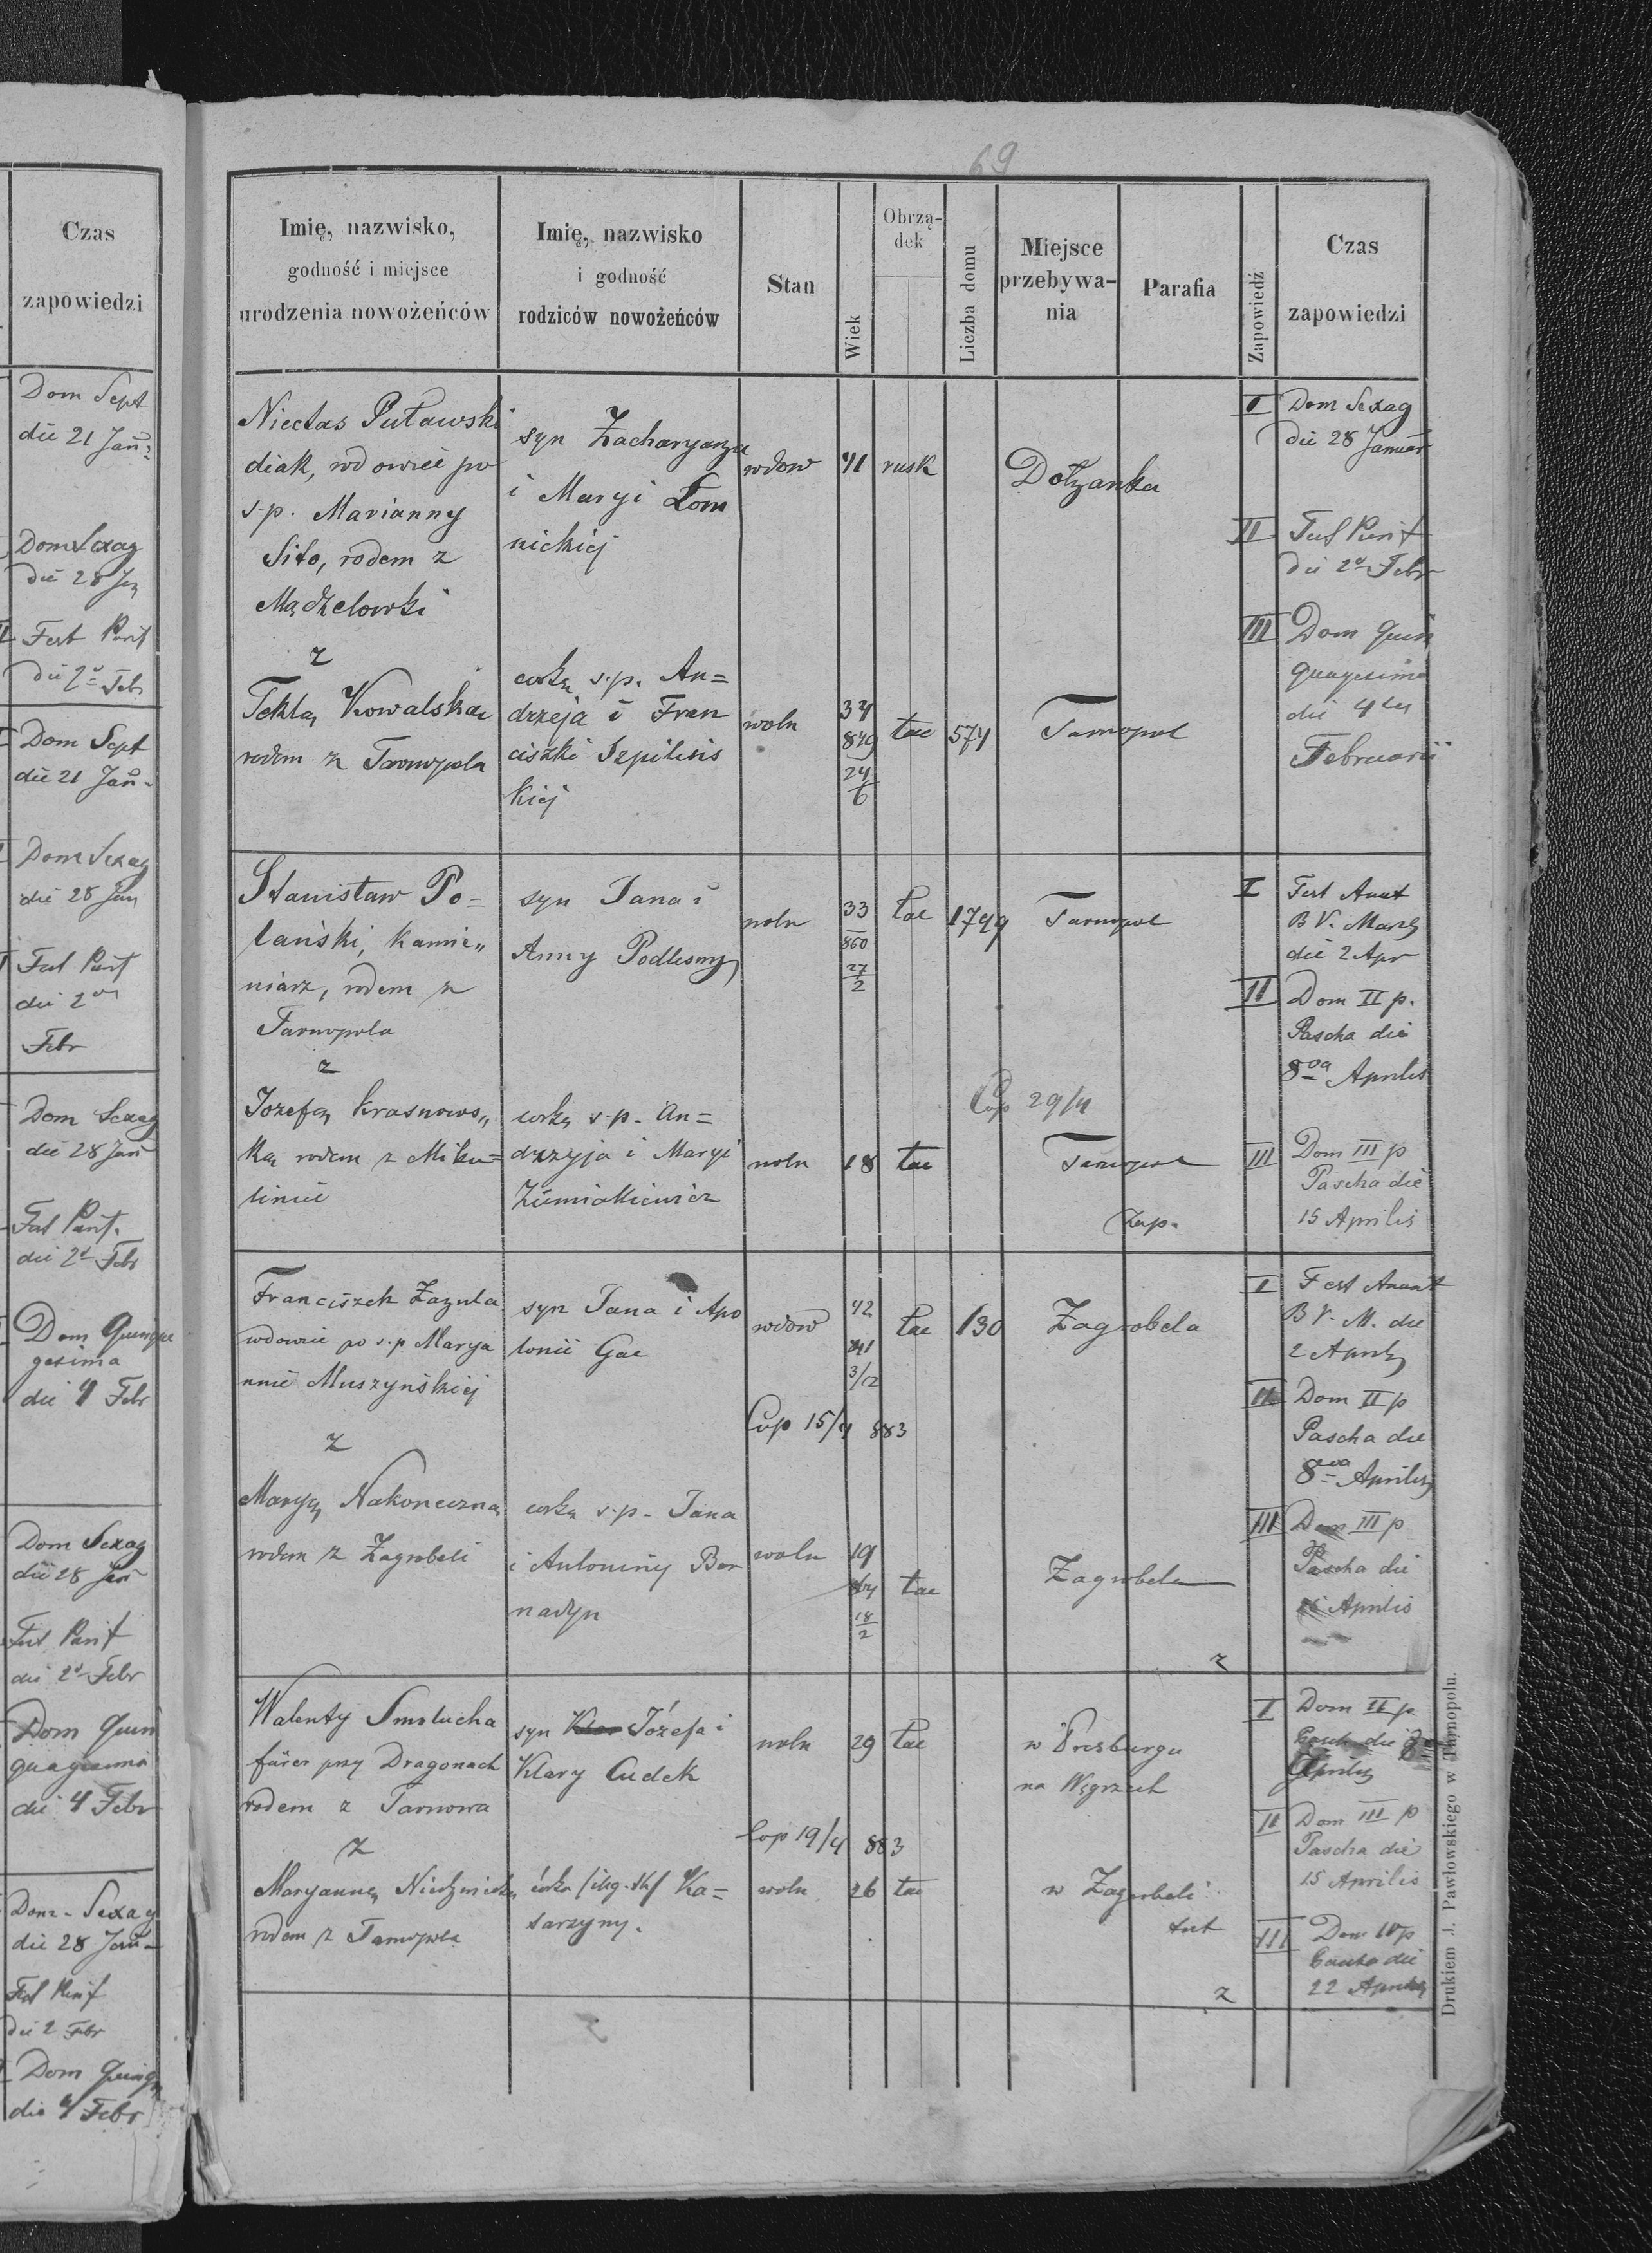 Czas
zapowiedzi
Dom Sept
die 21 Jan
Dom Sexag
die 28 Jan
Fest Purif
die 2a Febr
Dom Sept
die 21 Jan
Dom Sexag
die 28 Jan
Fest Purif
die 2da
Febr
Dom Sexag
die 28 Jan
Fest Purif.
die 2a Febr
Dom Quinqua
gesima
die 4 Febr
Dom Sexag
die 28 Jan
Fest Purif
die 2a Febr
Dom Quin
quagesima
die 4 Febr
Dom. Sexag
die 28 Jan
Fest Purif
die 2 Febr
Dom Quinq
die 4 Febr
69
Imię, nazwisko,
godność i miejsce
urodzenia nowożeńców
Imię, nazwisko
i godność
rodziców nowożeńców
Stan
Wiek
Obrzą-
dek
Liczba domu
Miejsce
przebywa-
nia
Parafia
Zapowiedź
Czas
zapowiedzi
Nicetas Puławski
diak, wdowiec po
s.p. Marianny
Sito, rodem z
Mądzelowki
z
Teklą Kowalską
rodem z Tarnopola
syn Zacharyasza
i Maryi Łom
nickiej
córką s.p. An=
drzeja i Fran
ciszki Szpilins
kiej
wdow 41 rusk Dołzanka
woln 34 łac 574 Tarnopol
849
24
6
I Dom Sexag
die 28 Januar
II Fest Purif
die 2a Febr
III Dom Quin
quagesima
die 4ta
Februarii
Stanisław Po=
lański, kamie„
niarz, rodem z
Tarnopola
z
Jozefą Krasnows„
ką rodem z Miku=
liniec
syn Jana i
Anny Podlesny
córką s.p. An=
drzeja i Maryi
Ziemiakiewicz
woln 33 łac 1749 Tarnopol
850
27
2
Cop 29/4
woln 18 łac Tarnopol
Zap.
I Fest Anunt
B V. Mariae
die 2 Apr
II Dom II p.
Pascha die
8va Aprilis
III Dom III p
Pascha die
15 Aprilis
Franciszek Zazula
wdowiec po s.p. Marya
nnie Muszyńskiej
z
Maryą Nakoneczną
rodem z Zagrobeli
syn Jana i Apo
lonii Gac
córką s.p. Jana
i Antoniny Ber
nadyn
wdow 42 łac 130 Zagrobela
841
3/12
Cop 15/4 883
woln 19 łac Zagrobela
18
2
z
I Fest Anunt
B V. M. die
2 Aprilis
II Dom II p
Pascha die
8va Aprilis
III Dom III p
Pascha die
15 Aprilis
Walenty Smolucha
fürer przy Dragonach
rodem z Tarnowa
z
Maryanną
rodem z Tarnopola
syn Józefa i
Klary Cudek
córką Ka=
tarzyny.
woln 29 łac w Presburgu
na Węgrzech
Cop 19/4 883
woln 26 łac w Zagrobeli
tut
z
I Dom II p
Pasch die 8
Aprilis
II Dom III p
Pascha die
15 Aprilis
III Dom IV p
Pascha die
22 Aprilis
Drukiem J. Pawłowskiego w Tarnopolu.